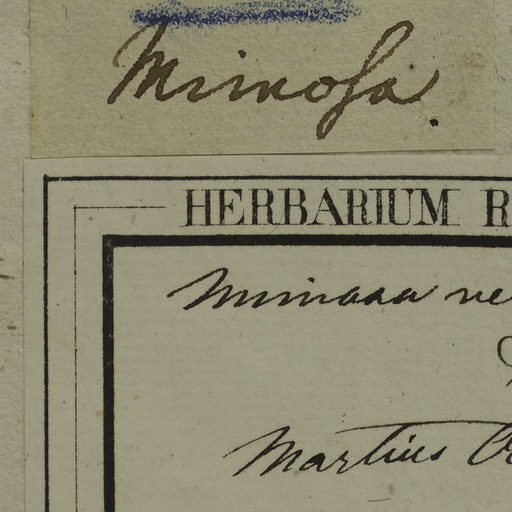 Mimosa.
HERBARIUM R
Mimosa ve
Martius